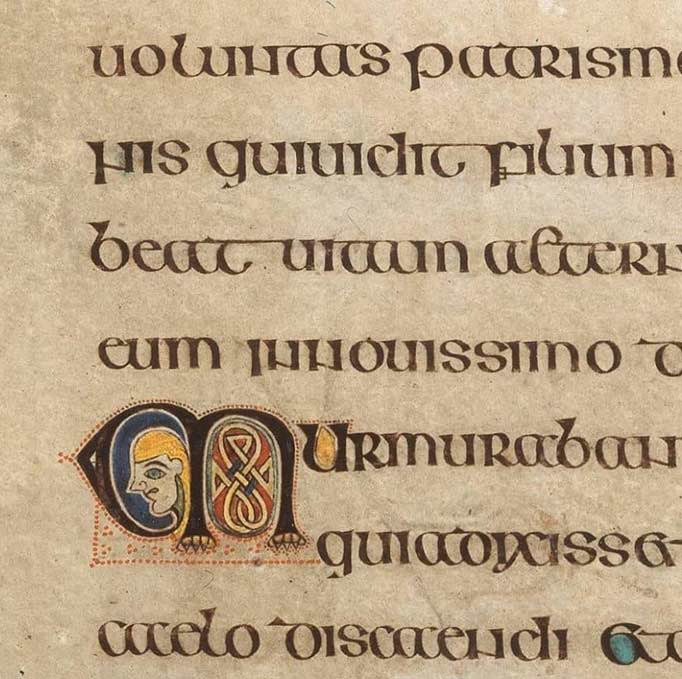 uoluntas patrisme
nis quiuidit filium
beat uitam aetern
eum innouissimo d
Murmuraban
quiadixisset
caelo discaendi et